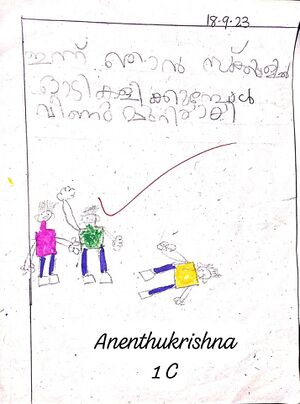 18-9-23
ഇന്ന് ഞാൻ സ്കൂളിൽ
ഓടി കളിക്കുമ്പോൾ
വീണു മുറിവായി
Ananthukrishna
1 C